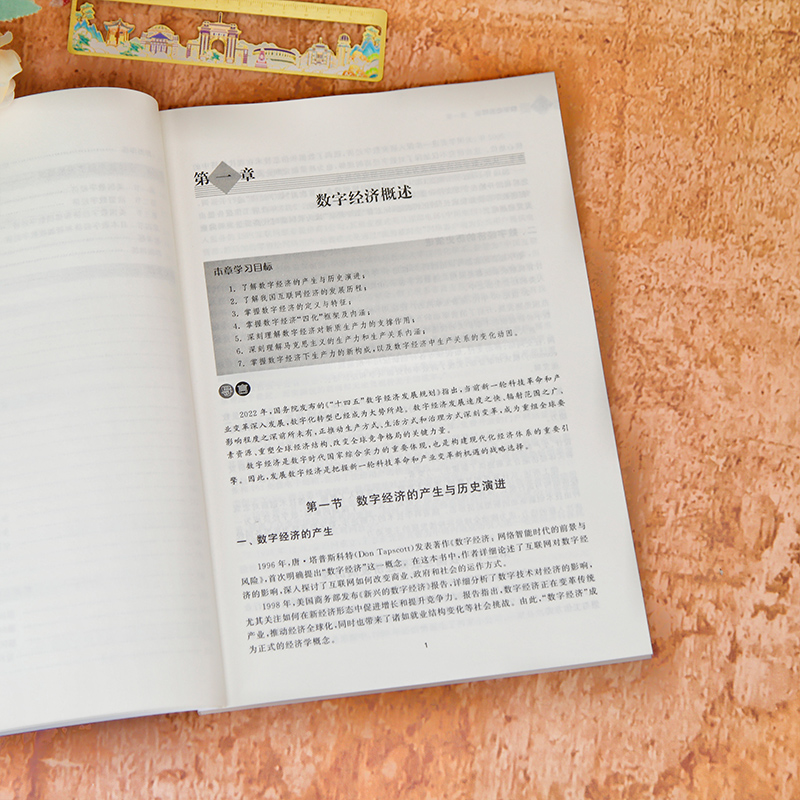 第一章
数字经济概述
本章学习目标
1. 了解数字经济的产生与历史演进；
2. 了解我国互联网经济的发展历程；
3. 掌握数字经济的定义与特征；
4. 掌握数字经济“四化”框架及内涵；
5. 深刻理解数字经济对新质生产力的支撑作用；
6. 深刻理解马克思主义的生产力和生产关系内涵；
7. 掌握数字经济下生产力的新构成，以及数字经济中生产关系的变化动因。
导言
2022 年，国务院发布的《“十四五”数字经济发展规划》指出，当前新一轮科技革命和产
业变革深入发展，数字化转型已经成为大势所趋。数字经济发展速度之快、辐射范围之广、
影响程度之深前所未有，正推动生产方式、生活方式和治理方式深刻变革，成为重组全球要
素资源、重塑全球经济结构、改变全球竞争格局的关键力量。
数字经济是数字时代国家综合实力的重要体现，也是构建现代化经济体系的重要引
擎。因此，发展数字经济是把握新一轮科技革命和产业变革新机遇的战略选择。
第一节 数字经济的产生与历史演进
一、数字经济的产生
1996 年，唐·塔普斯科特(Don Tapscott)发表著作《数字经济：网络智能时代的前景与
风险》，首次明确提出“数字经济”这一概念。在这本书中，作者详细论述了互联网对数字经
济的影响，深入探讨了互联网如何改变商业、政府和社会的运作方式。
1998 年，美国商务部发布《新兴的数字经济》报告，详细分析了数字技术对经济的影响，
尤其关注如何在新经济形态中促进增长和提升竞争力。报告指出，数字经济正在变革传统
产业，推动经济全球化，同时也带来了诸如就业结构变化等社会挑战。由此，“数字经济”成
为正式的经济学概念。
1